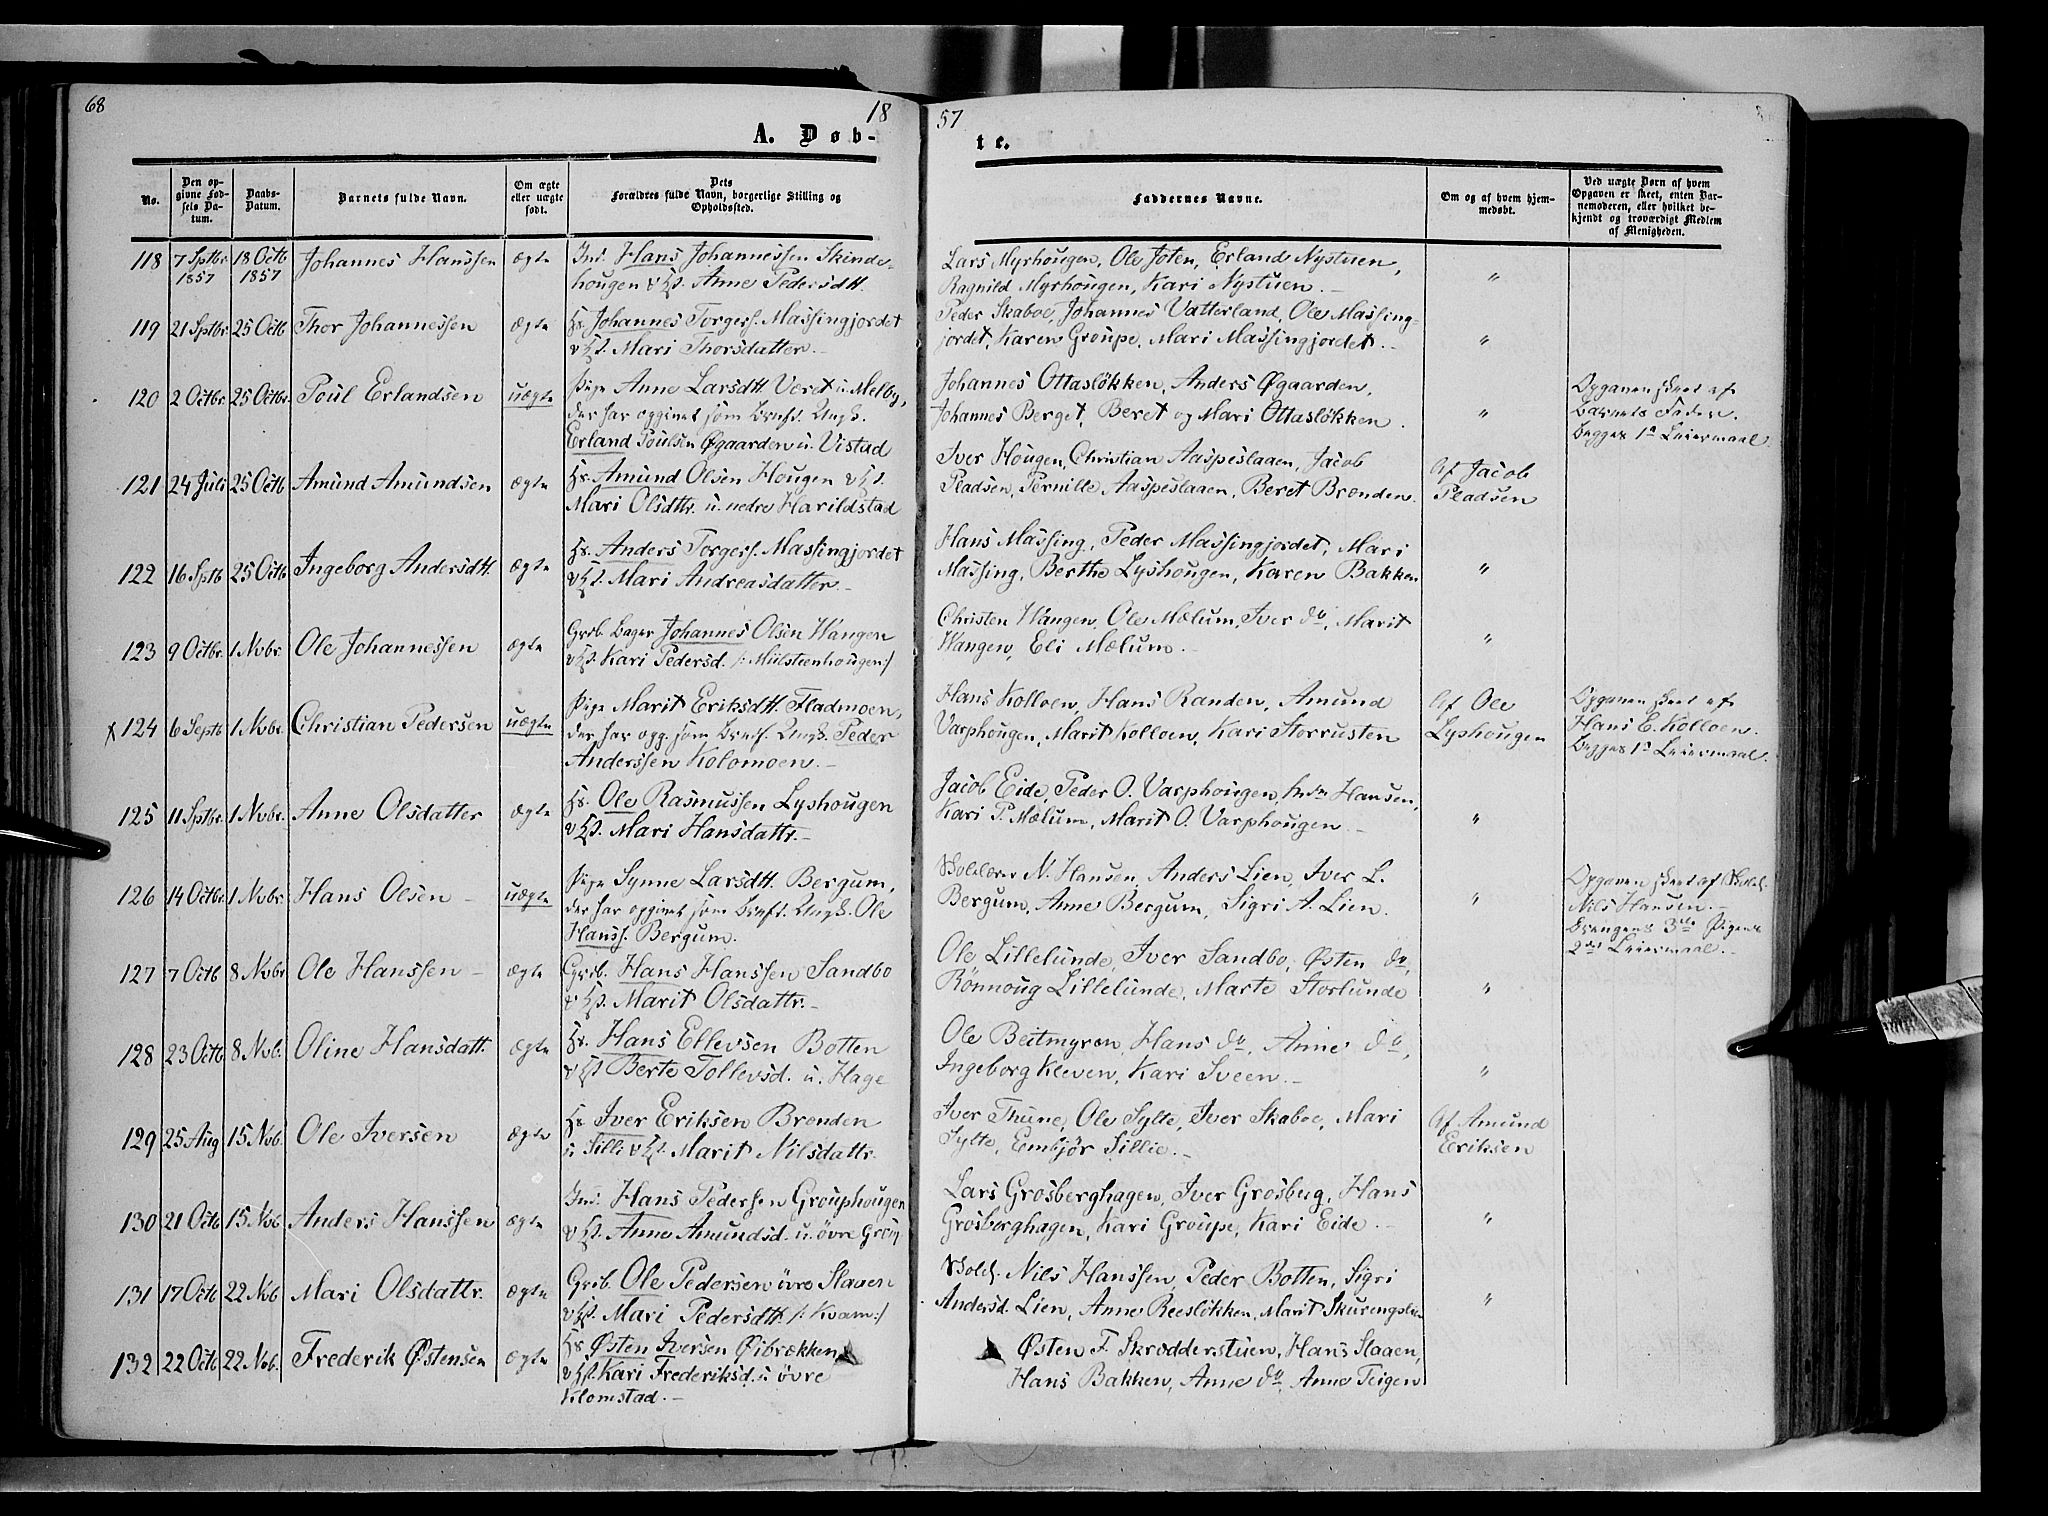 68
18
57
A. Døb-
te.
No.
Den op-
givne Fød-
sels Da-
tum.
Daabs-
Datum.
Barnets fulde Navn.
Om ægte
eller uægte
født.
Dets
Forældres fulde Navn, borgerlige Stilling og
Opholdssted.
Faddernes Navne.
Om og af hvem hjem-
medøbt.
Ved uægte Børn af hvem
Opgaven er skeet, enten Bar-
nemoderen, eller hvilket be-
kjendt og troværdigt Medlem
af Menigheden.
118 7 Sptbr 1857 18 Octb 1857 Johannes Hanssen ægte Ind. Hans Johannessen Skinde-
hougen & Hst. Anne Pedersdtt.
Lars Myrhougen, Ole Joten, Erland Nystuen,
Ragnild Myrhougen, Kari Nystuen. "
119 21 Sptbr 25 Octb Thor Johannessen ægte Hs. Johannes Torgers. Massingjordet
& Hst. Mari Thorsdatter.
Peder Skaboe, Johannes Vatterland, Ole Massing-
jordet, Karen Groupe, Mari Massingjordet. "
120 2 Octbr. 25 Octbr. Poul Erlandsen uægte Pige Anne Larsdtt Veret u. Melby,
der har opgivet som Barnf. Ungk.
Erland Poulsen Øgaarden u. Vistad
Johannes Ottasløkken, Anders Øgaarden,
Johannes Berget, Beret og Mari Ottasløkken. "
Opgaven skeet af
Barnets Fader.
Begges 1ª Leiermaal.
121 24 Juli 25 Octb Amund Amundsen ægte Hs. Amund Olsen Hougen & Hst.
Mari Olsdttr. u. nedre Harildstad
Iver Hougen, Christian Aaspeslaaen, Jacob
Pladsen, Pernille Aaspeslaaen, Beret Brenden.
Af Jacob
Pladsen
122 16 Sptb 25 Octb Ingeborg Andersdtt. ægte Hs. Anders Torgers. Massingjordet
& Hst. Mari Andreasdatter.
Hans Massing, Peder Massingjordet, Mari
Massing, Berthe Lyshougen, Karen Bakken "
123 9 Octbr. 1 Nvbr. Ole Johannessen ægte Grdb. Bager Johannes Olsen Wangen
& Hst. Kari Pedersd. /: Mülsteenhougen :/
Christen Wangen, Ole Mælum, Iver do, Marit
Wangen, Eli Mælum. "
x 124 6 Septb 1 Nvbr. Christian Pedersen uægte Pige Marit Eriksdtt. Fladmoen,
der har opg. som Barnf. Ungk. Peder
Anderssen Kolomoen.
Hans Kolloen, Hans Randen, Amund
Varphougen, Marit Kolloen, Kari Storrusten
Af Ole
Lyshougen
Opgaven skeet af
Hans E. Kolloen.
Begges 1ª Leiermaal.
125 11 Sptbr. 1 Nvbr. Anne Olsdatter ægte Hs. Ole Rasmussen Lyshougen
& Hst. Mari Hansdattr.
Jacob Eide, Peder O. Varphougen, Hansen,
Kari P. Mælum, Marit O. Varphougen. "
126 14 Octbr. 1 Nvbr. Hans Olsen uægte Pige Synne Larsdtt. Bergum,
der har opgivet som Barnf. Ungk. Ole
Hanss. Bergum.
Skolelærer N. Hansen, Anders Lien, Iver L.
Bergum, Anne Bergum, Sigri A. Lien. "
Opgaven skeet af Skolel.
Nils Hansen.
Drengens 3die Pigens
2det Leiermaal.
127 7 Octb 8 Nvbr Ole Hanssen ægte Grdb. Hans Hanssen Sandbo
& Hst. Marit Olsdattr.
Ole Lillelunde, Iver Sandbo, Østen do,
Rønnoug Lillelunde, Marte Storlunde "
128 23 Octb 8 Nvb. Oline Hansdatt. ægte Hs. Hans Ellevsen Botten
& Hst Berte Tollevsd. u. Hage
Ole Beitmyren, Hans do, Anne do,
Ingeborg Kleven, Kari Sveen. "
129 25 Aug 15. Nvb. Ole Iversen ægte Hs Iver Eriksen Brenden
u Silli & Hst. Marit Nilsdattr.
Iver Thune, Ole Sylte, Iver Skaboe, Mari
Sylte, Embjør Sillie.
Af Amund
Eriksen
130 21 Octb 15. Nvb Anders Hanssen ægte Ind. Hans Pedersen Grouphougen
& Hst. Anne Amundsd. u. øvre Group
Lars Grosberghagen, Iver Grosberg, Hans
Grosberghagen, Kari Groupe, Kari Eide. "
131 17 Octb 22 Nvb Mari Olsdattr. ægte Grdb. Ole Pedersen øvre Slaaen
& Hst. Mari Pedersdtt. /: Kvam :/
Skolel. Nils Hanssen, Peder Botten, Sigri
Andersd. Lien, Anne Reesløkken, Marit Skurengslien "
132 22 Octb 22 Nvb. Frederik Østensen ægte Hs Østen Iversen Øibrækken
& Hst. Kari Frederiksd. u øvre
Klomstad.
Østen F. Skrædderstuen, Hans Slaaen,
Hans Bakken, Anne do, Anne Teigen